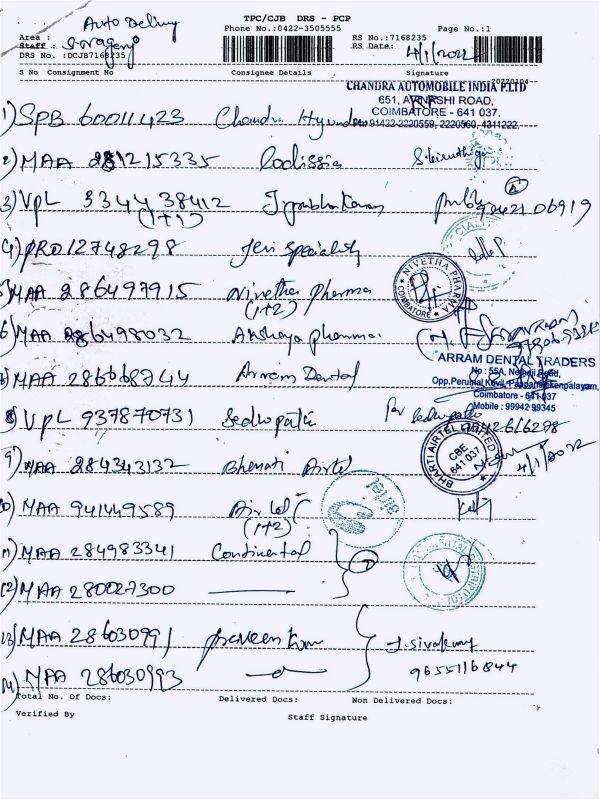 TPC/CJB DRS - PCP
Auto Delivery
Phone No.:0422-3505555 Page No.:1
Area :
Staff :
RS No.:7168235
DRS No. :DCJB7168235
RS Date: 4/1/2022
S No Consignment No Consignee Details Signature
20220104
CHANDRA AUTOMOBILE INDIA P.LTD
651, AVINASHI ROAD,
COIMBATORE - 641 037.
91422-2220559, 2220560, 4311222
1) SPB 60011423 Chandra Hyundai
2) MAA 281215335 Codissia
3) VPL 334438412 Jprabhakaran
(1+1)
4) PRO12748298 Jeri speciality
5) MAA 286497915 Nivetha pharma
(1+2)
NIVETHA PHARMA
COIMBATORE
6) MAA 286498032 Akshaya pharma
ARRAM DENTAL TRADERS
No : 55A, Nethaji Road,
Opp.Perumal Kovil, Pappanaickenpalayam,
Coimbatore - 641 037
Mobile : 99942 99345
MAA 286668744 Arram Dental
8) VPL 937870731 Sedhupathi
9) MAA 284343132 Bharati Airtel
BHARTI AIRTEL LIMITED
CBE
641 037
4/1/2022
10) MAA 941449589 Airtel
(1+2)
11) MAA 284983341 Continental
12) MAA 280027300
13) MAA 286030991 praveen kum
J. Sivakumar
9655116844
14) MAA 286030993
Total No. Of Docs: Delivered Docs: Non Delivered Docs:
Verified By Staff Signature